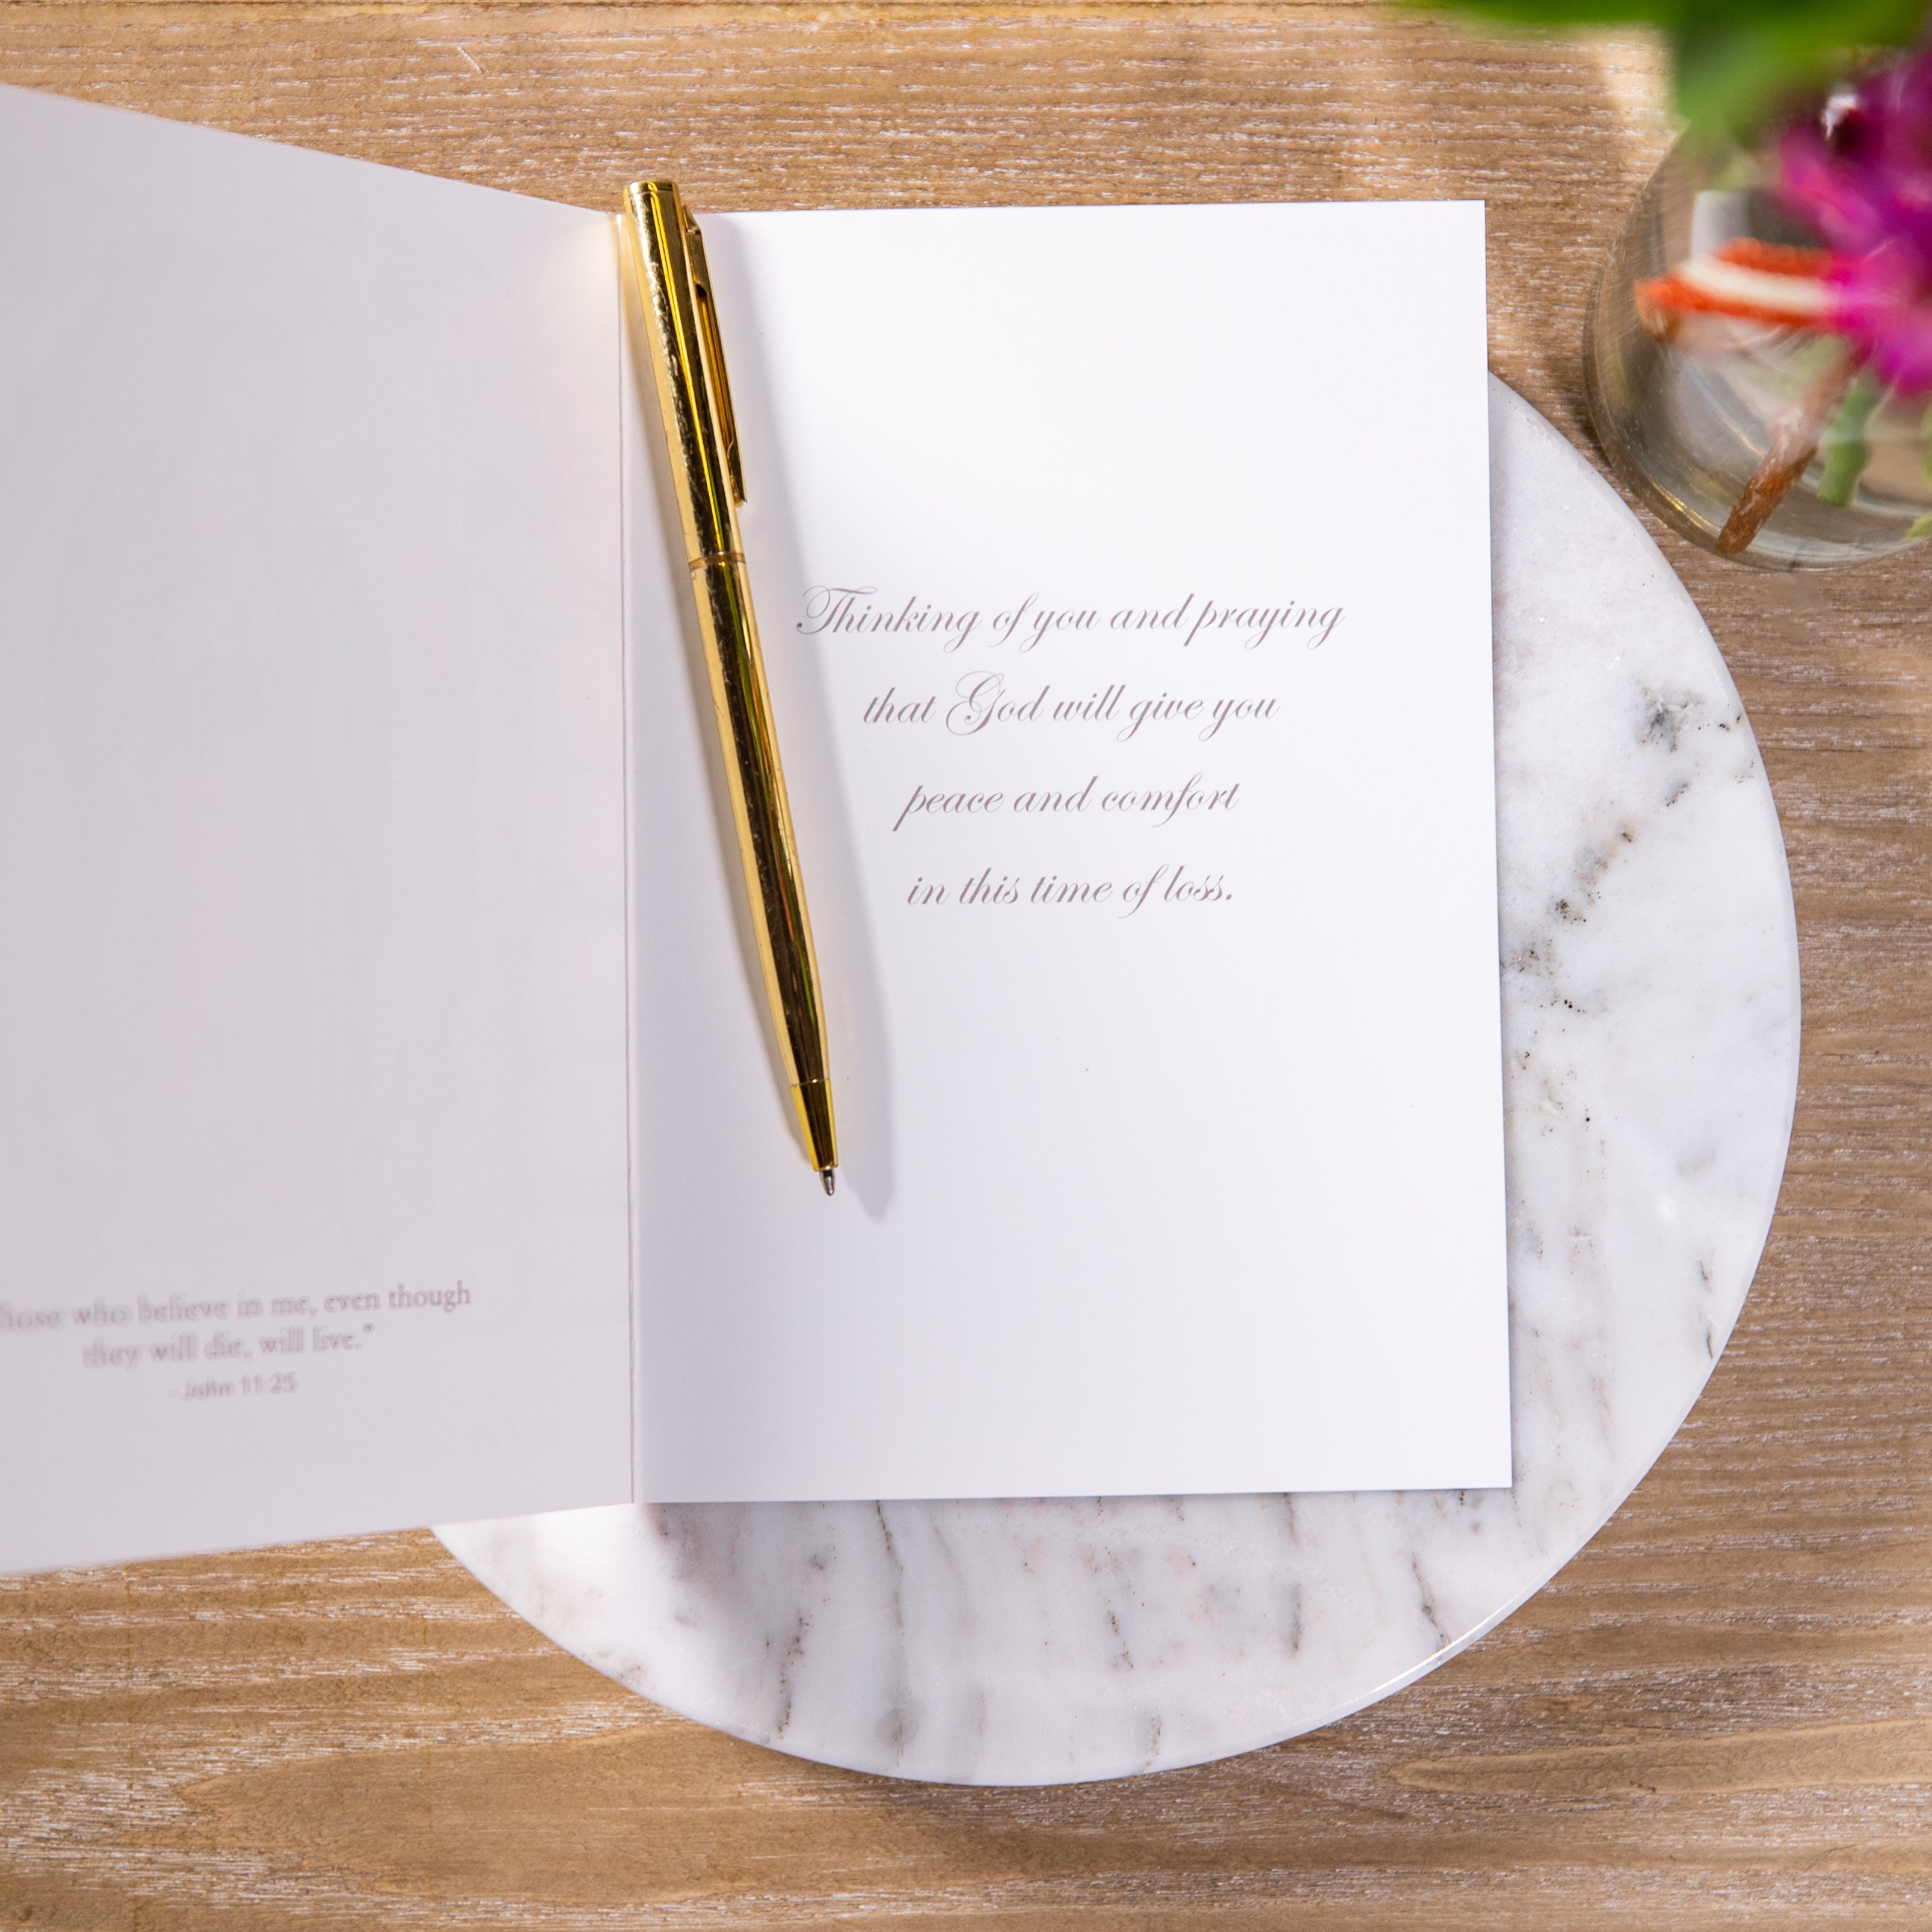 hose who believe in me, even though
they will die, will live."
- John 11:25
Thinking of you and praying
that God will give you
peace and comfort
in this time of loss.